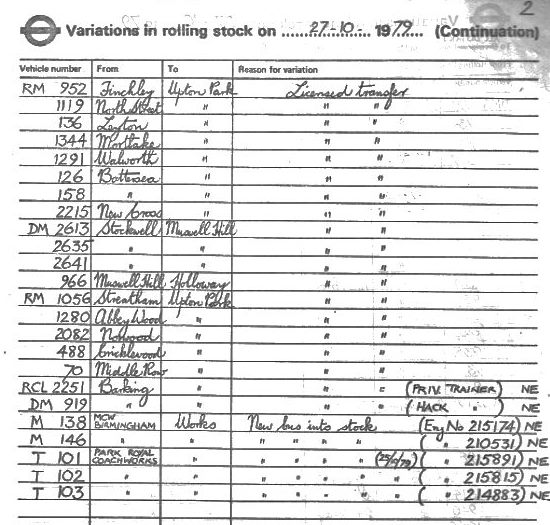 2
Variations in rolling stock on 27-10- 1979 (Continuation)
Vehicle number From To Reason for variation
RM 952 Finchley Upton Park Licensed transfer
1119 North Street " " "
136 Leyton " " "
1344 Mortlake " " "
1291 Walworth " " "
126 Battersea " " "
158 " " " "
2215 New Cross " " "
DM 2613 Stockwell Muswell Hill " "
2635 " " " "
2641 " " " "
966 Muswell Hill Holloway " "
RM 1056 Streatham Upton Park " "
1280 Abbey Wood " " "
2082 Norwood " " "
488 Cricklewood " " "
70 Middle Row " " "
RCL 2251 Barking " " " (PRIV. TRAINER) NE
DM 919 " " " " (HACK " ) NE
M 138 MCW BIRMINGHAM Works New bus into stock (Eng No 215174) NE
M 146 " " " " " " ( " 210531) NE
T 101 PARK ROYAL COACHWORKS " " " " " ( " 215891) NE
T 102 " " " " " " ( " 215815) NE
T 103 " " " " " " ( " 214883) NE